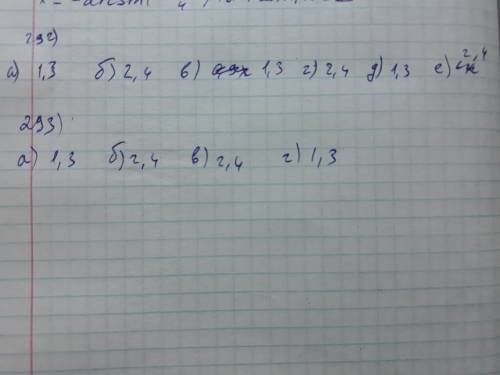 292)
а) 1,3 б) 2,4 в) 1,3 г) 2,4 д) 1,3 е) 2,4
293)
а) 1,3 б) 2,4 в) 2,4 г) 1,3